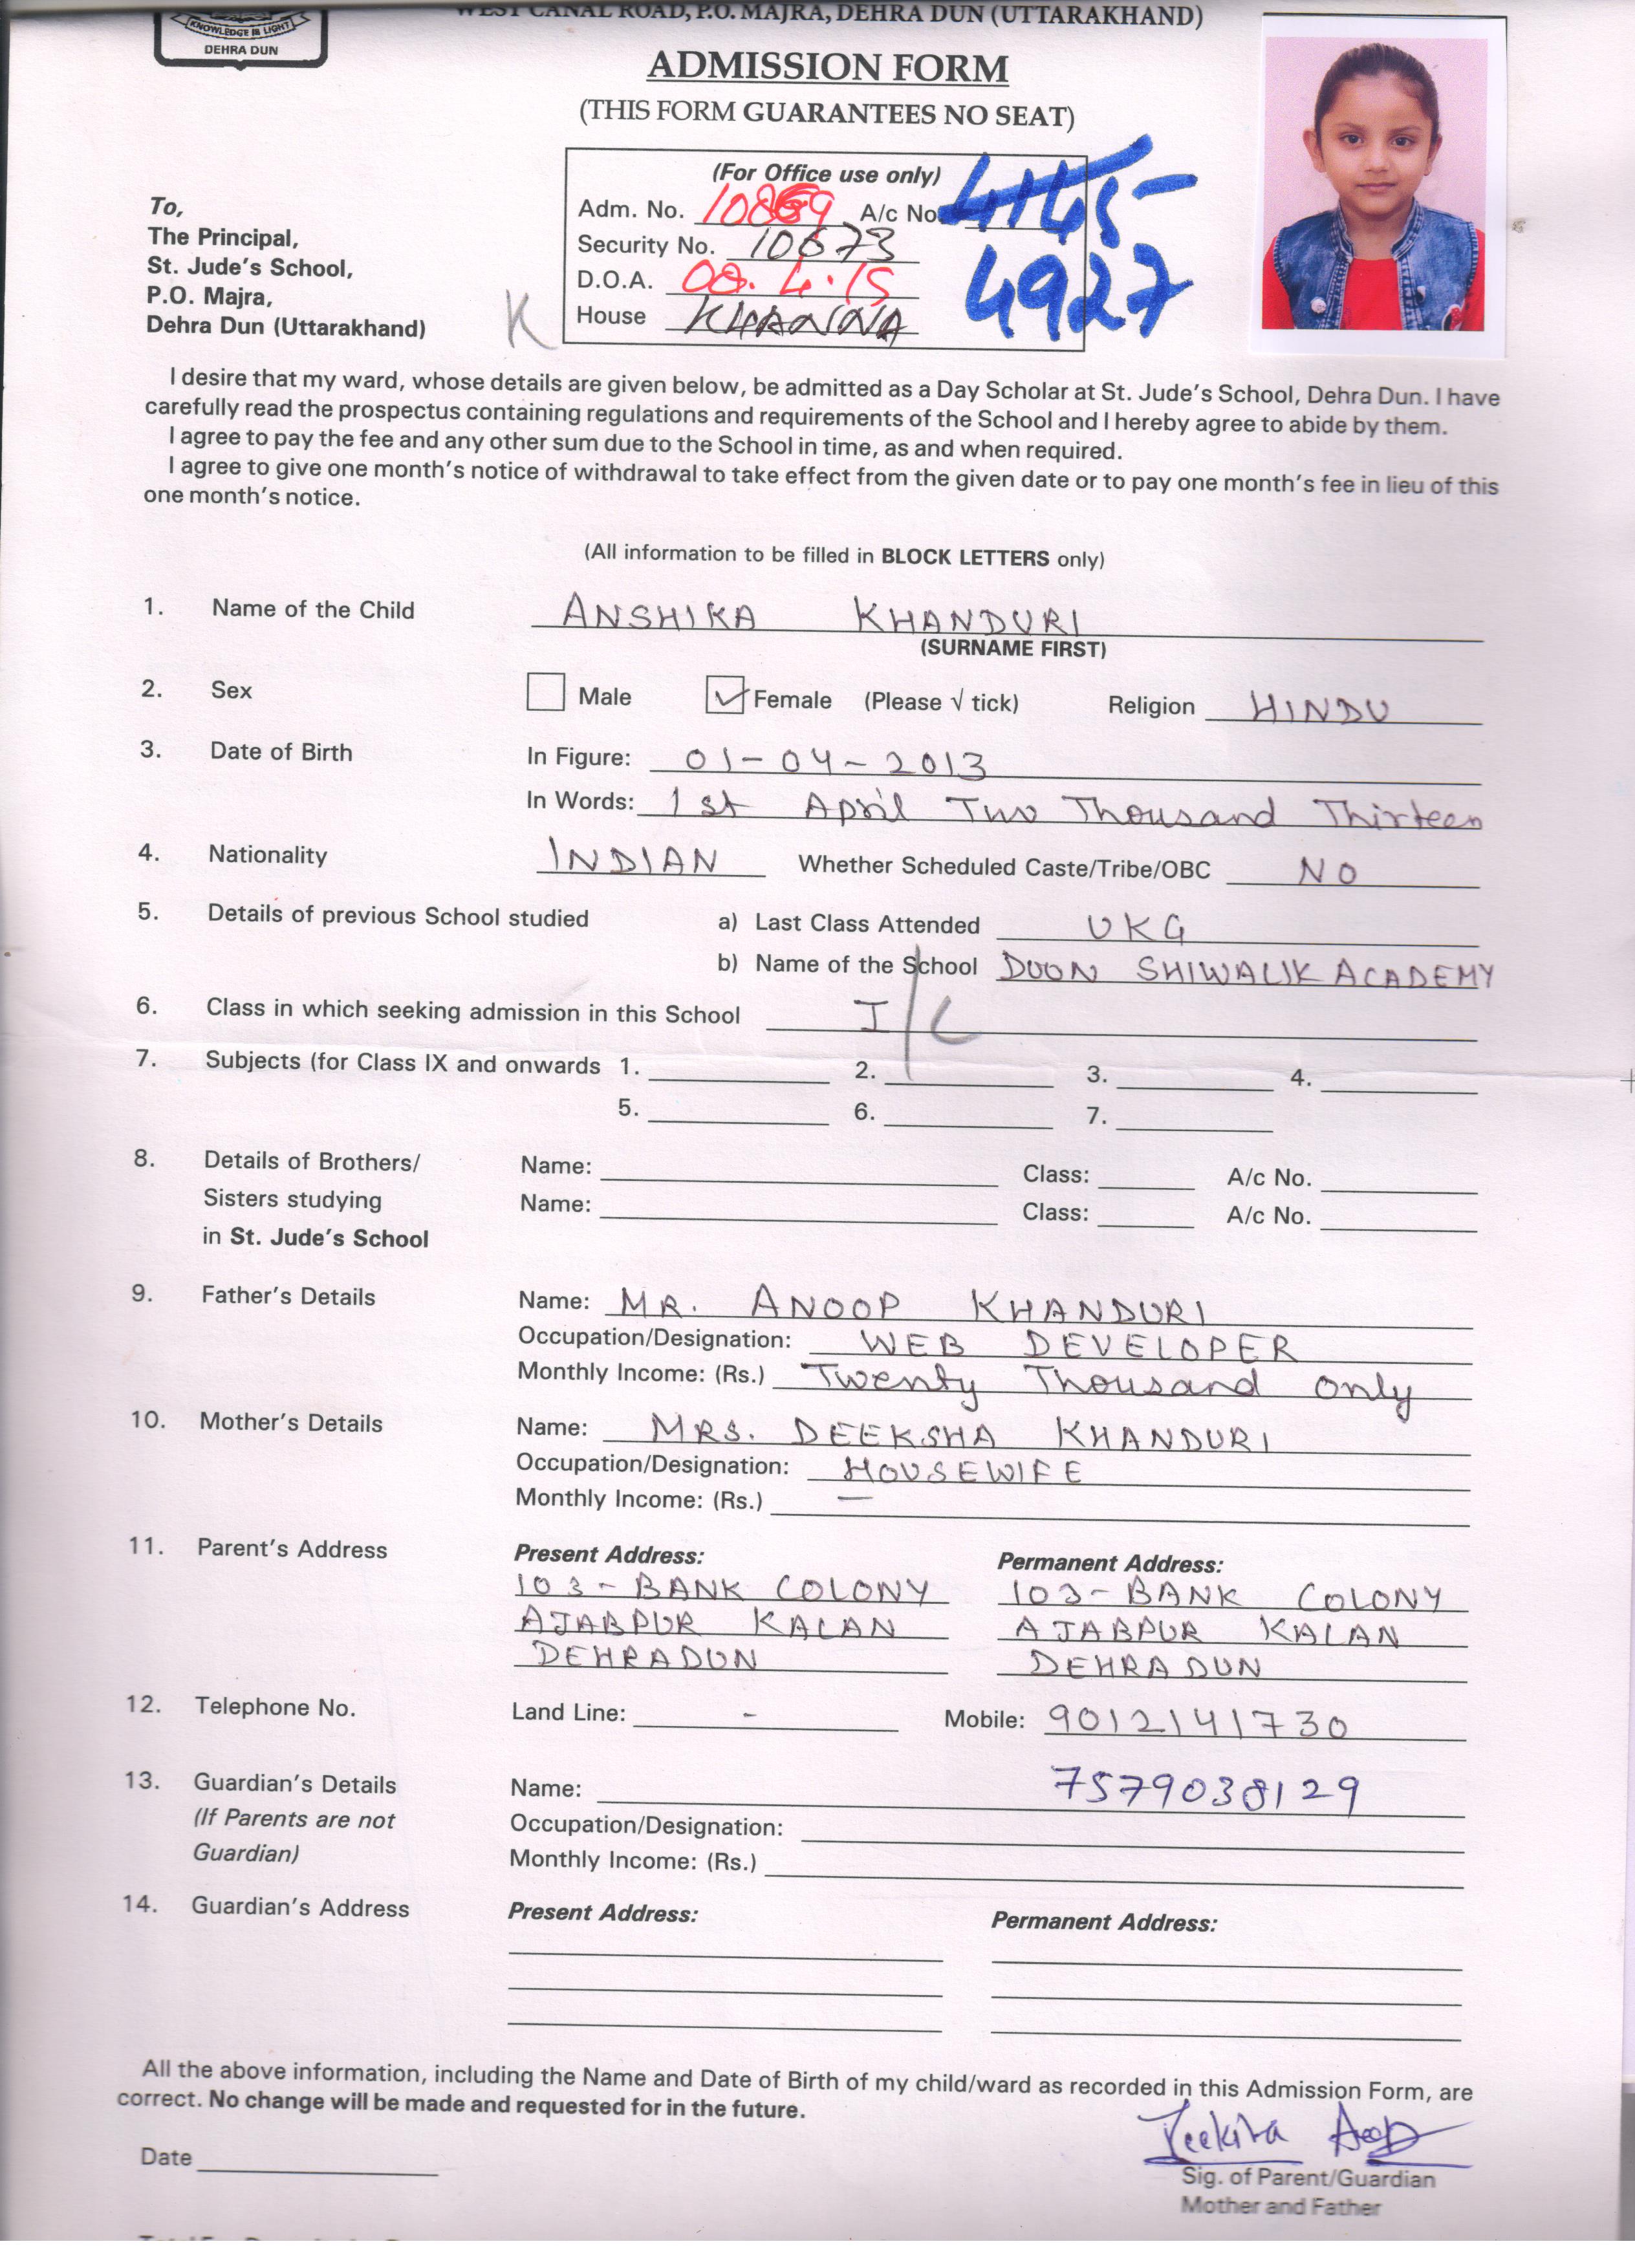 KNOWLEDGE IS LIGHT
DEHRA DUN
WEST CANAL ROAD, P.O. MAJRA, DEHRA DUN (UTTARAKHAND)
ADMISSION FORM
(THIS FORM GUARANTEES NO SEAT)
(For Office use only)
Adm. No. 10869 A/c No. 4145
Security No. 10673
4927
D.O.A. 08.4.15
House KHANNA
K
To,
The Principal,
St. Jude's School,
P.O. Majra,
Dehra Dun (Uttarakhand)
I desire that my ward, whose details are given below, be admitted as a Day Scholar at St. Jude's School, Dehra Dun. I have
carefully read the prospectus containing regulations and requirements of the School and I hereby agree to abide by them.
I agree to pay the fee and any other sum due to the School in time, as and when required.
I agree to give one month's notice of withdrawal to take effect from the given date or to pay one month's fee in lieu of this
one month's notice.
(All information to be filled in BLOCK LETTERS only)
1. Name of the Child ANSHIKA KHANDURI
(SURNAME FIRST)
2. Sex Male ✓ Female (Please √ tick) Religion HINDU
3. Date of Birth In Figure: 01-04-2013
In Words: 1st April Two Thousand Thirteen
4. Nationality INDIAN Whether Scheduled Caste/Tribe/OBC NO
5. Details of previous School studied a) Last Class Attended UKG
b) Name of the School DOON SHIWALIK ACADEMY
6. Class in which seeking admission in this School I/C
7. Subjects (for Class IX and onwards 1. 2. 3. 4.
5. 6. 7.
8. Details of Brothers/ Name: Class: A/c No.
Sisters studying Name: Class: A/c No.
in St. Jude's School
9. Father's Details Name: MR. ANOOP KHANDURI
Occupation/Designation: WEB DEVELOPER
Monthly Income: (Rs.) Twenty Thousand only
10. Mother's Details Name: MRS. DEEKSHA KHANDURI
Occupation/Designation: HOUSEWIFE
Monthly Income: (Rs.) —
11. Parent's Address Present Address: Permanent Address:
103-BANK COLONY 103-BANK COLONY
AJABPUR KALAN AJABPUR KALAN
DEHRADUN DEHRADUN
12. Telephone No. Land Line: - Mobile: 9012141730
13. Guardian's Details Name: 7579038129
(If Parents are not Occupation/Designation:
Guardian) Monthly Income: (Rs.)
14. Guardian's Address Present Address: Permanent Address:
All the above information, including the Name and Date of Birth of my child/ward as recorded in this Admission Form, are
correct. No change will be made and requested for in the future.
Date
Sig. of Parent/Guardian
Mother and Father